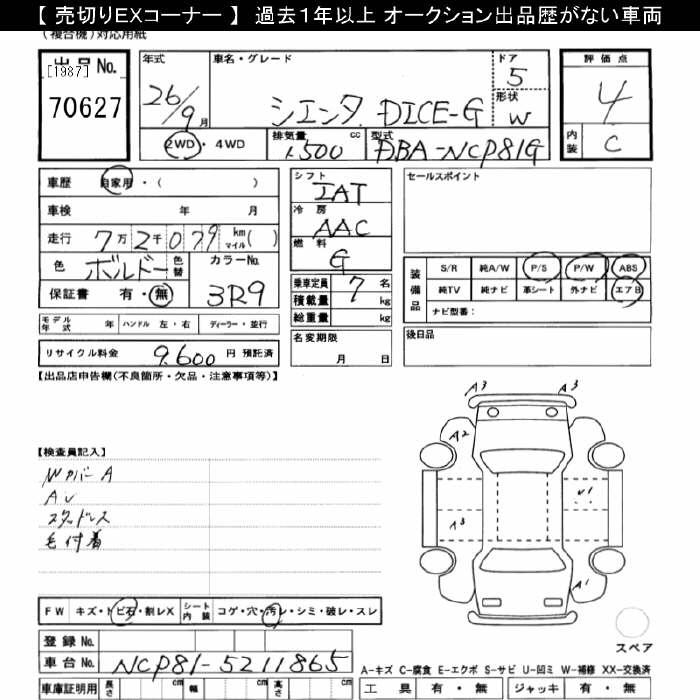 【 売切りＥＸコーナー 】 過去１年以上 オークション出品歴がない車両
(複合機)対応用紙
出品 No.
[1987]
70627
年式
26/9月
車名・グレード
シエンタ DICE-G
ドア
5
形状
W
評価点
4
内装
C
2WD ・ 4WD
排気量 cc
1500
型式
DBA-NCP81G
車歴 自家用・( )
車検 年 月
走行 7万2千079 km マイル( )
色 ボルドー 色替
カラーNo.
3R9
保証書 有・無
シフト
IAT
冷房
AAC
燃料
G
乗車定員 7 名
積載量 kg
総重量 kg
名変期限
月 日
セールスポイント
装備品
S/R 純A/W P/S P/W ABS
純TV 純ナビ 革シート 外ナビ エアB
ナビ型番：
後日品
モデル年式 年 ハンドル 左・右 ディーラー・並行
リサイクル料金 9,600 円 預託済
【出品店申告欄(不良箇所・欠品・注意事項等)】
【検査員記入】
Wカバー A
スタッドレス
毛付着
A3
A3
A2
A3
U1
A1
スペア
FW キズ・トビ石・割レX
シート内装 コゲ・穴・汚レ・シミ・破レ・スレ
登録 No.
車台 No. NCP81-5211865
車庫証明用 長さ cm 幅 cm 高さ cm
A-キズ C-腐食 E-エクボ S-サビ U-凹ミ W-補修 XX-交換済
工具 有・無 ジャッキ 有・無